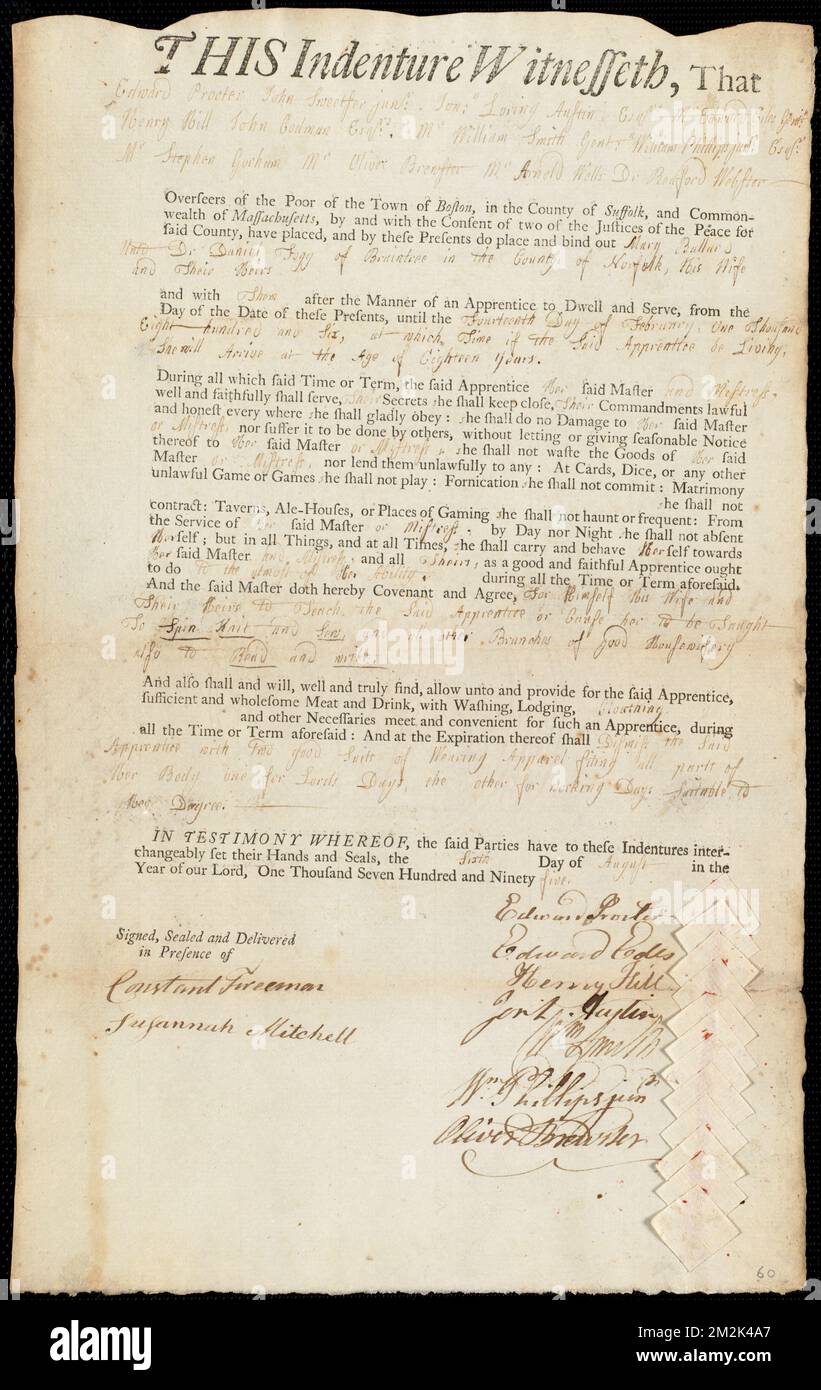 THIS Indenture Witnesseth, That
Edward Procter John Sweetser junr. Jona Loring Austin Esqrs Mr Edward Edes Gentn
Henry Hill John Codman Esqrs. Mr William Smith Gentn William Phillips junr Esqr.
Mr Stephen Gorham Mr Oliver Brewster Mr Arnold Wells Dr Redford Webster
Overseers of the Poor of the Town of Boston, in the County of Suffolk, and Common-
wealth of Massachusetts, by and with the Consent of two of the Justices of the Peace for
said County, have placed, and by these Presents do place and bind out Mary Ballard
Unto Dr Daniel Fogg of Braintree in the County of Norfolk, His Wife
and Their Heirs
and with Them after the Manner of an Apprentice to Dwell and Serve, from the
Day of the Date of these Presents, until the Fourteenth Day of February, One Thousand
Eight hundred and Six, at which Time if the Said Apprentice be Living,
She will Arrive at the Age of Eighteen Years.
During all which said Time or Term, the said Apprentice Her said Master and Mistress,
well and faithfully shall serve, Their Secrets she shall keep close, Their Commandments lawful
and honest every where she shall gladly obey: she shall do no Damage to Her said Master
or Mistress, nor suffer it to be done by others, without letting or giving seasonable Notice
thereof to Her said Master or Mistress, she shall not waste the Goods of Her said
Master or Mistress, nor lend them unlawfully to any: At Cards, Dice, or any other
unlawful Game or Games she shall not play: Fornication she shall not commit: Matrimony
she shall not
contract: Taverns, Ale-Houses, or Places of Gaming she shall not haunt or frequent: From
the Service of Her said Master or Mistress, by Day nor Night she shall not absent
Herself; but in all Things, and at all Times, she shall carry and behave Herself towards
Her said Master and Mistress, and all Theirs, as a good and faithful Apprentice ought
to do to the utmost of Her Ability, during all the Time or Term aforesaid.
And the said Master doth hereby Covenant and Agree, For Himself His Wife and
Their Heirs to Teach the Said Apprentice or Cause her to be Taught
To Spin Knit and Sew, and other Branches of good Housewifery
also to Read and write.
And also shall and will, well and truly find, allow unto and provide for the said Apprentice,
sufficient and wholesome Meat and Drink, with Washing, Lodging, Cloathing
and other Necessaries meet and convenient for such an Apprentice, during
all the Time or Term aforesaid: And at the Expiration thereof shall Dismiss the Said
Apprentice with Two good Suits of Wearing Apparel fitting all parts of
Her Body one for Lords Days, the other for working Days suitable to
Her Degree.
IN TESTIMONY WHEREOF, the said Parties have to these Indentures inter-
changeably set their Hands and Seals, the Sixth Day of August in the
Year of our Lord, One Thousand Seven Hundred and Ninety five.
Signed, Sealed and Delivered
in Presence of
Constant Freeman
Susannah Mitchell
Edward Procter
Edward Edes
Henry Hill
Jon L. Austin
Wm Smith
Wm Phillips junr
Oliver Brewster
60
alamy
Image ID: 2M2K4A7
www.alamy.com